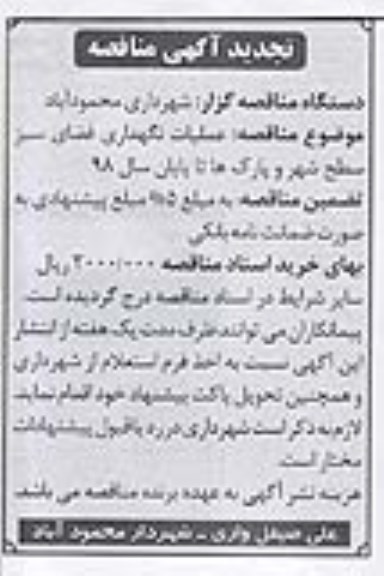 تجدید آگهی مناقصه
دستگاه مناقصه گزار: شهرداری محمودآباد
موضوع مناقصه: عملیات نگهداری فضای سبز
سطح شهر و پارک ها تا پایان سال ۹۸
تضمین مناقصه: به مبلغ ۵% مبلغ پیشنهادی به
صورت ضمانت نامه بانکی
بهای خرید اسناد مناقصه ۲۰۰۰/۰۰۰ ریال
سایر شرایط در اسناد مناقصه درج گردیده است.
پیمانکاران می توانند ظرف مدت یک هفته از انتشار
این آگهی نسبت به اخذ فرم استعلام از شهرداری
و همچنین تحویل پاکت پیشنهاد خود اقدام نمایند.
لازم به ذکر است شهرداری در رد یا قبول پیشنهادات
مختار است.
هزینه نشر آگهی به عهده برنده مناقصه می باشد.
علی صیقل واری ـ شهردار محمود آباد